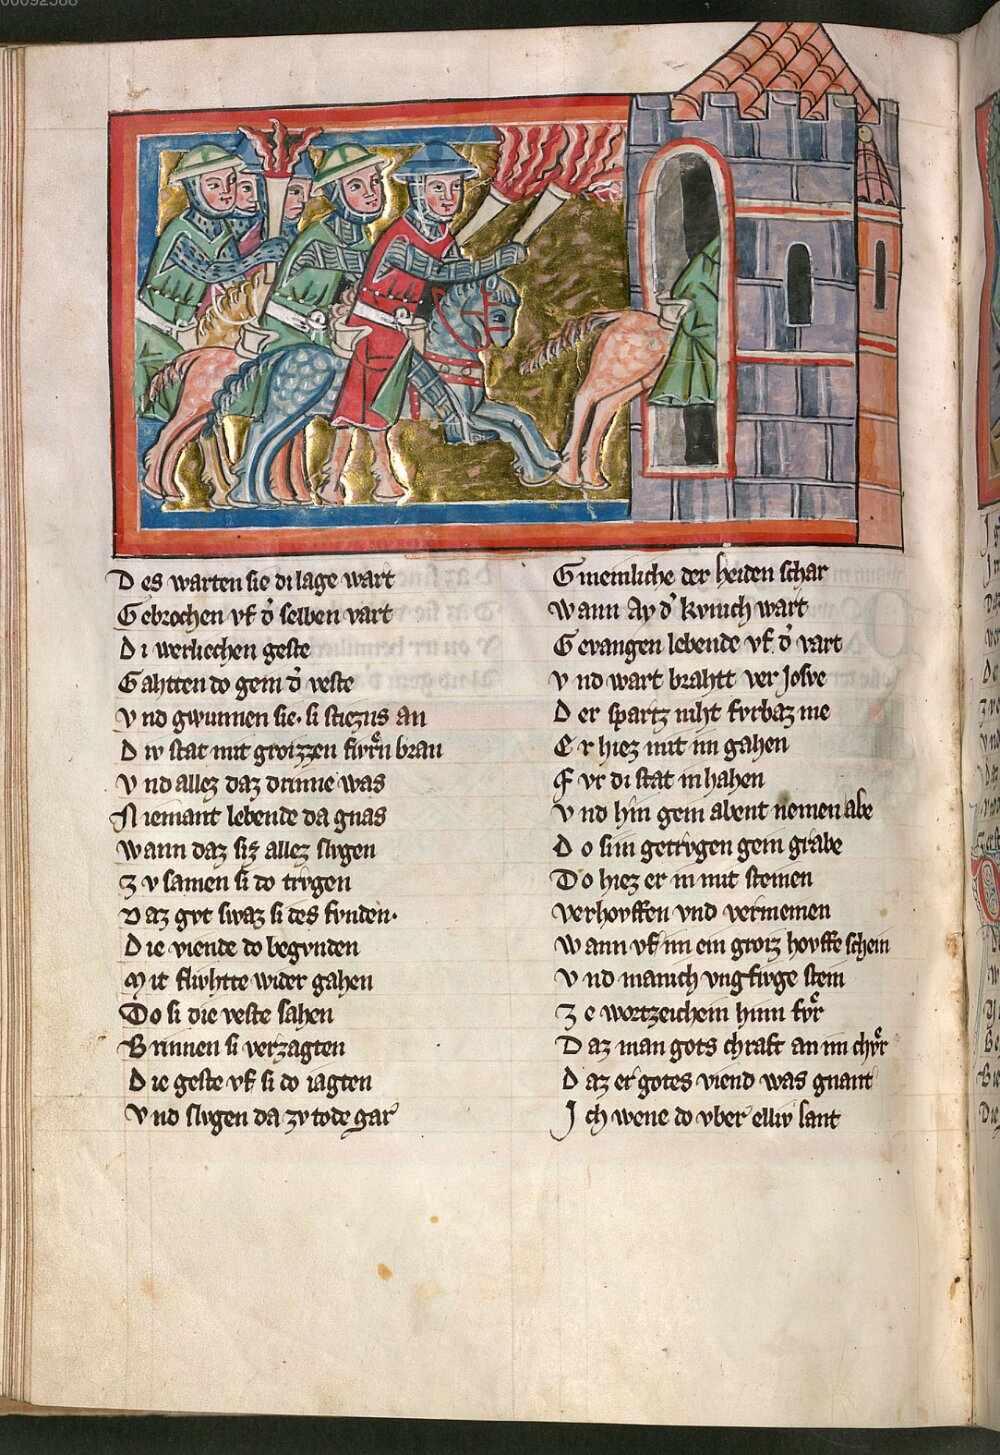 00092588
Des warten sie di lage wart
Gebrochen vf d' selben vart
Di werliechen geste
Gahtten do gem d' veste
Vnd gwunnen sie· si stiezns an
Div stat mit groizzen fivrn bran
Vnd allez daz drinne was
Niemant lebende da gnas
Wann daz siz allez slvgen
Zv samen si do trvgen
Daz gvt swaz si des fvnden·
Die viende do begvnden
Mit flvhtte wider gahen
Do si die veste sahen
Brinnen si verzagten
Die geste vf si do iagten
Vnd slvgen da zv tode gar
Gmeinliche der heiden schar
Wann Ay d' kvnich wart
Gevangen lebende vf d' vart
Vnd wart brahtt ver Josve
Der spartz niht fvrbaz me
Er hiez mit im gahen
Fvr di stat in hahen
Vnd hin gem abent nemen abe
Do sim getrvgen gem grabe
Do hiez er in mit steinen
Verhovffen vnd vermeinen
Wann vf im ein groiz hovffe schein
Vnd manich vngfvge stein
Ze wortzeichein hinn fvr
Daz man gots chraft an im chvr
Daz er gotes viend was gnant
Ich wene do vber elliv lant